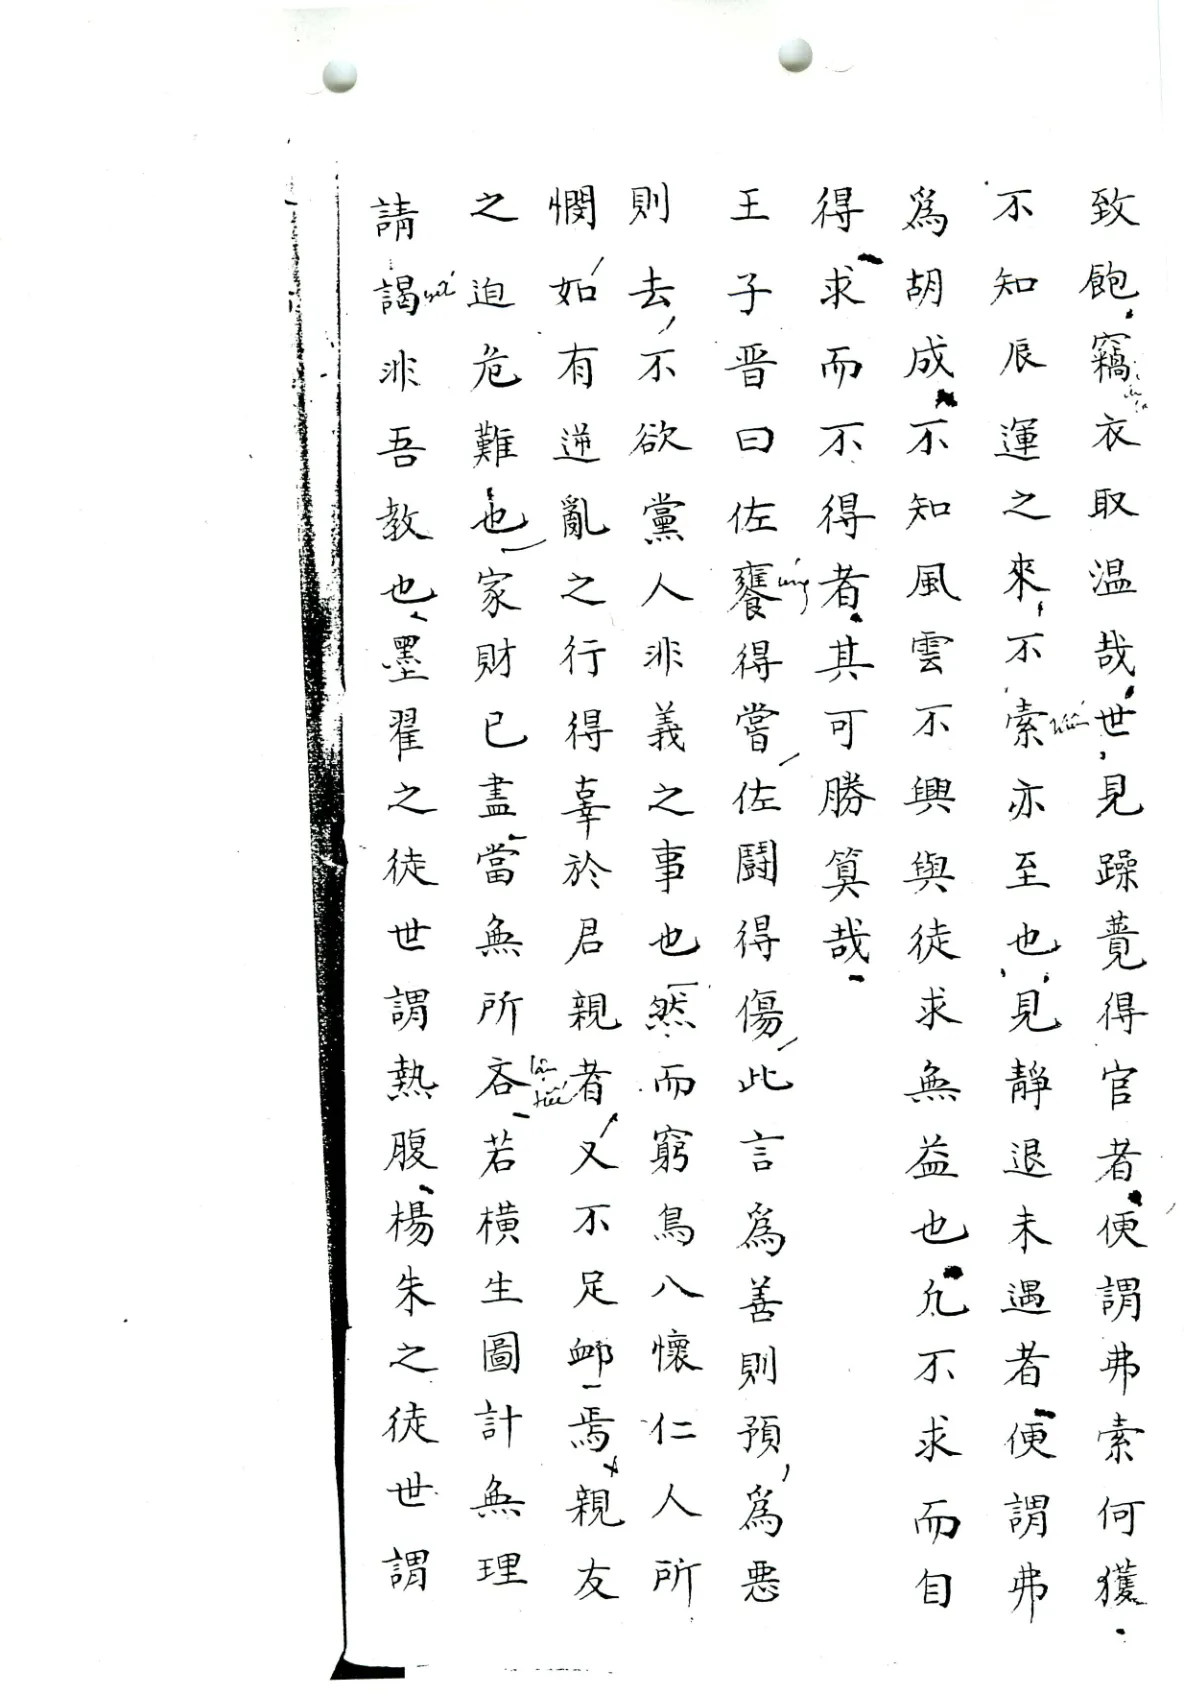 致飽竊衣取温哉世見躁藑得官者便謂弗索何獲
不知辰運之來不索亦至也見靜退未遇者便謂弗
爲胡成不知風雲不興與徒求無益也凢不求而自
得求而不得者其可勝算哉
王子晋曰佐饔得嘗佐鬪得傷此言爲善則預爲悪
則去不欲黨人非義之事也然而窮鳥入懷仁人所
憫如有逆亂之行得辜於君親者又不足衈焉親友
之迫危難也家財已盡當無所吝若橫生圖計無理
請謁非吾教也墨翟之徒世謂熱腹楊朱之徒世謂